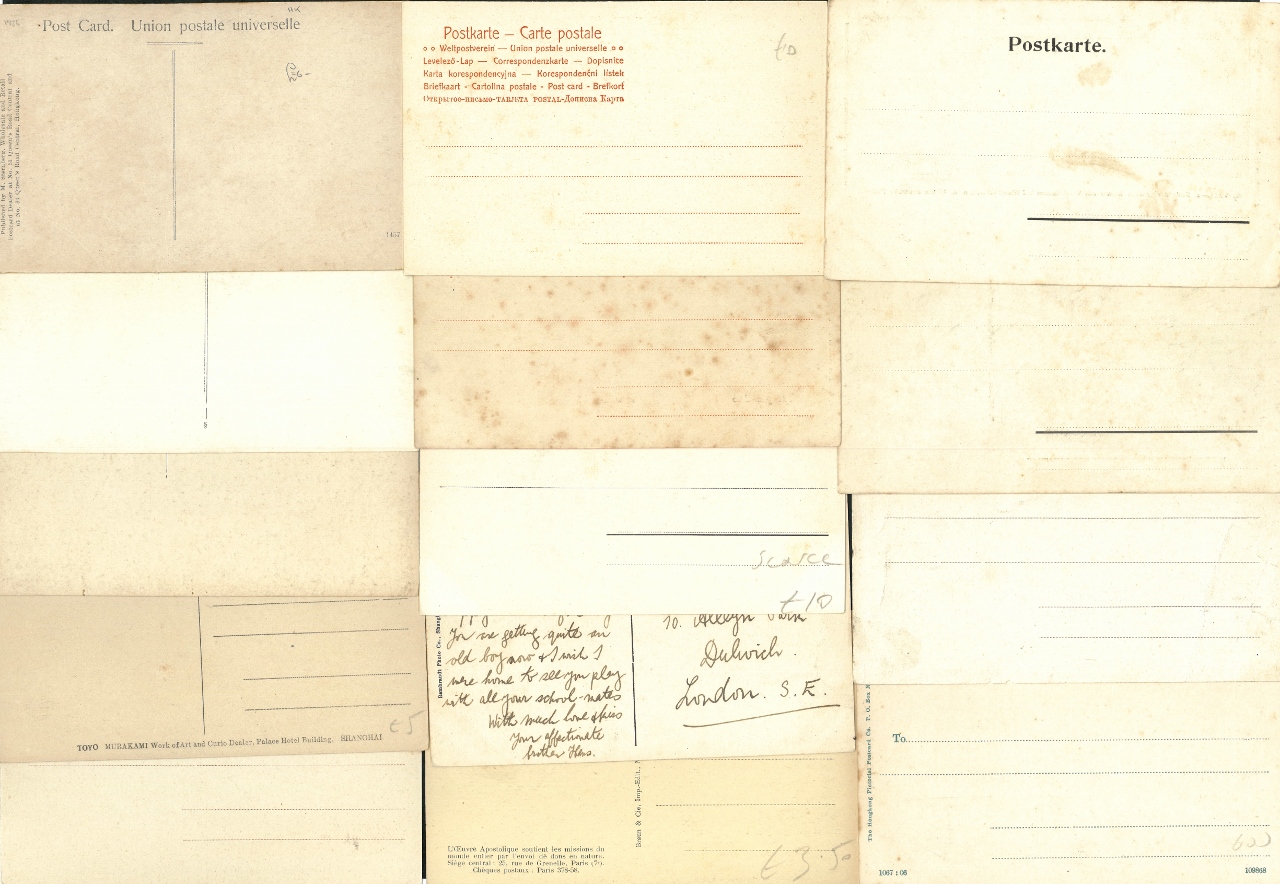 Post Card. Union postale universelle
Published by M. Sternberg, Wholesale and Retail
Postcard Dealer at No. 51 Queen's Road Central and
Queen's Road Central, Hongkong.
1457
Postkarte — Carte postale
Weltpostverein — Union postale universelle
Levelező-Lap — Correspondenzkarte — Dopisnice
Karta korespondencyjna — Korespondenční lístek
Briefkaart - Cartolina postale - Post card - Brefkort
Открытое-письмо-TARJETA POSTAL-Дописна Карта
£10
Postkarte.
Scarce
£10
TOYO MURAKAMI Work of Art and Curio Dealer, Palace Hotel Building. SHANGHAI
£5
You are getting quite an
old boy now & I wish I
were home to see you play
with all your school-mates
With much love & kiss
Your affectionate
brother Hans.
10. Alleyn Park
Dulwich.
London. S.E.
L'Œuvre Apostolique soutient les missions du
monde entier par l'envoi de dons en nature.
Siège central: 25, rue de Grenelle, Paris (7e).
Chèques postaux: Paris 378-58.
& Cie, Imp.-Édit.,
£3.50
The Hongkong Pictorial Postcard Co. P. O. Box
To
600
1067 : 06
109868